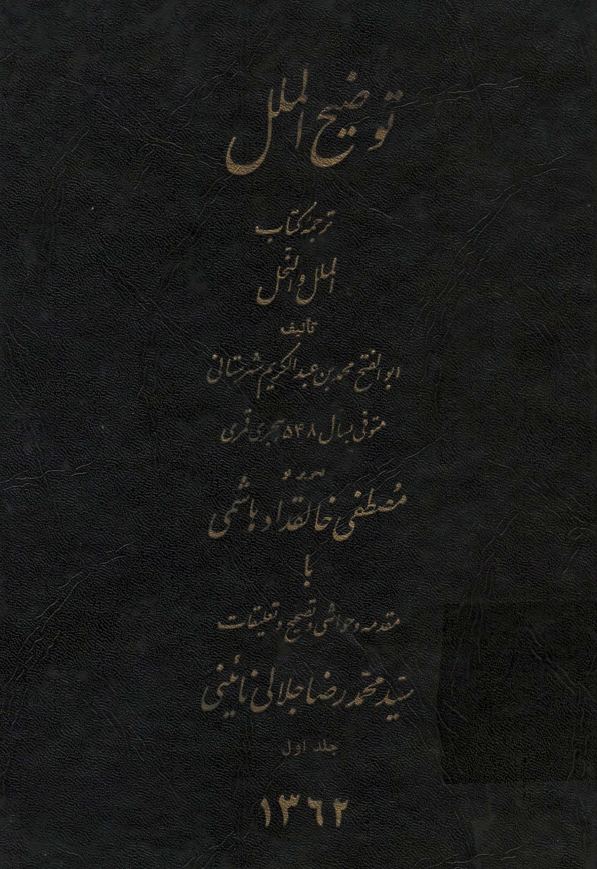 توضیح الملل
ترجمهٔ کتاب
الملل والنحل
تألیف
ابوالفتح محمد بن عبدالکریم شهرستانی
متوفی بسال ۵۴۸ هجری قمری
تحریر نو
مصطفی خالقداد هاشمی
با
مقدمه و حواشی و تصحیح و تعلیقات
سید محمد رضا جلالی نائینی
جلد اول
۱۳۶۲